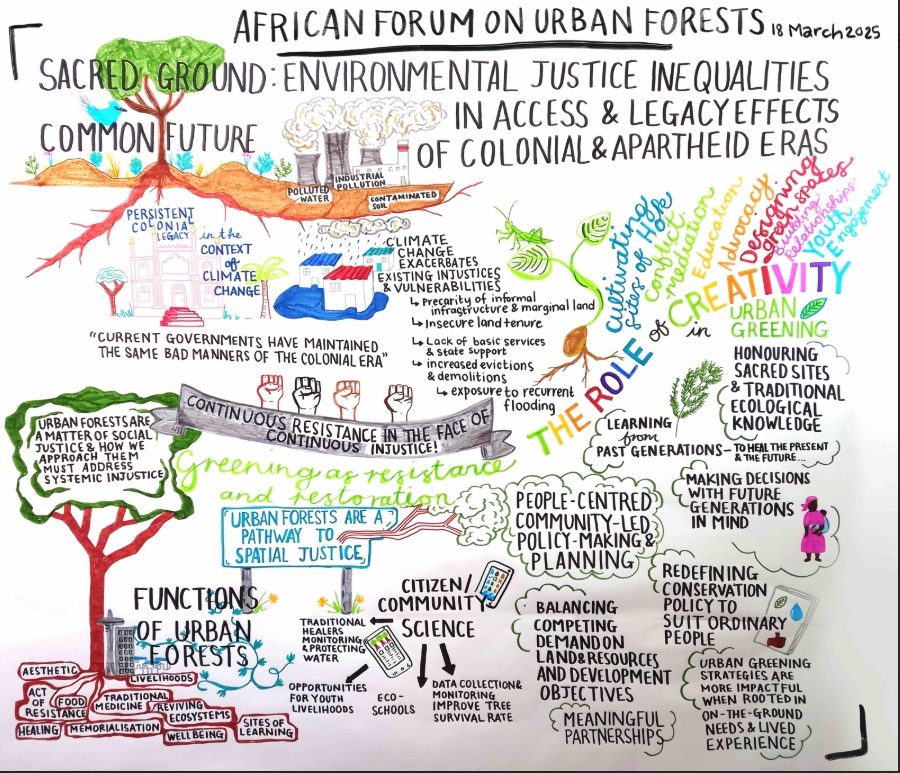 AFRICAN FORUM ON URBAN FORESTS 18 March 2025
SACRED GROUND: ENVIRONMENTAL JUSTICE INEQUALITIES
IN ACCESS & LEGACY EFFECTS
COMMON FUTURE
OF COLONIAL & APARTHEID ERAS
POLLUTED
WATER
INDUSTRIAL
POLLUTION
CONTAMINATED
SOIL
PERSISTENT
COLONIAL
LEGACY
in the
CONTEXT
OF
CLIMATE
CHANGE
CLIMATE
CHANGE
EXACERBATES
EXISTING INJUSTICES
& VULNERABILITIES
Precarity of informal
infrastructure & marginal land
Insecure land tenure
Lack of basic services
& state support
increased evictions
& demolitions
exposure to recurrent
flooding
"CURRENT GOVERNMENTS HAVE MAINTAINED
THE SAME BAD MANNERS OF THE COLONIAL ERA"
Cultivating
Sites of Hope
Conflict
mediation
Education
Advocacy
Designing
green spaces
Building
Relationships
Youth
Engagement
THE ROLE of CREATIVITY
in
URBAN
GREENING
CONTINUOUS RESISTANCE IN THE FACE OF
CONTINUOUS INJUSTICE!
URBAN FORESTS ARE
A MATTER OF SOCIAL
JUSTICE & HOW WE
APPROACH THEM
MUST ADDRESS
SYSTEMIC INJUSTICE
Greening as resistance
and restoration
URBAN FORESTS ARE A
PATHWAY TO
SPATIAL JUSTICE,
HONOURING
SACRED SITES
& TRADITIONAL
ECOLOGICAL
KNOWLEDGE
LEARNING
from
PAST GENERATIONS – TO HEAL THE PRESENT
& THE FUTURE...
MAKING DECISIONS
WITH FUTURE
GENERATIONS
IN MIND
PEOPLE-CENTRED
COMMUNITY-LED
POLICY-MAKING &
PLANNING
REDEFINING
CONSERVATION
POLICY TO
SUIT ORDINARY
PEOPLE
BALANCING
COMPETING
DEMAND ON
LAND & RESOURCES
AND DEVELOPMENT
OBJECTIVES
MEANINGFUL
PARTNERSHIPS
URBAN GREENING
STRATEGIES ARE
MORE IMPACTFUL
WHEN ROOTED IN
ON-THE-GROUND
NEEDS & LIVED
EXPERIENCE
CITIZEN/
COMMUNITY
SCIENCE
TRADITIONAL
HEALERS
MONITORING
& PROTECTING
WATER
OPPORTUNITIES
FOR YOUTH
LIVELIHOODS
ECO-
SCHOOLS
DATA COLLECTION &
MONITORING
IMPROVE TREE
SURVIVAL RATE
FUNCTIONS
OF URBAN
FORESTS
AESTHETIC
LIVELIHOODS
ACT
OF
RESISTANCE
FOOD
TRADITIONAL
MEDICINE
REVIVING
ECOSYSTEMS
HEALING
MEMORIALISATION
WELLBEING
SITES OF
LEARNING